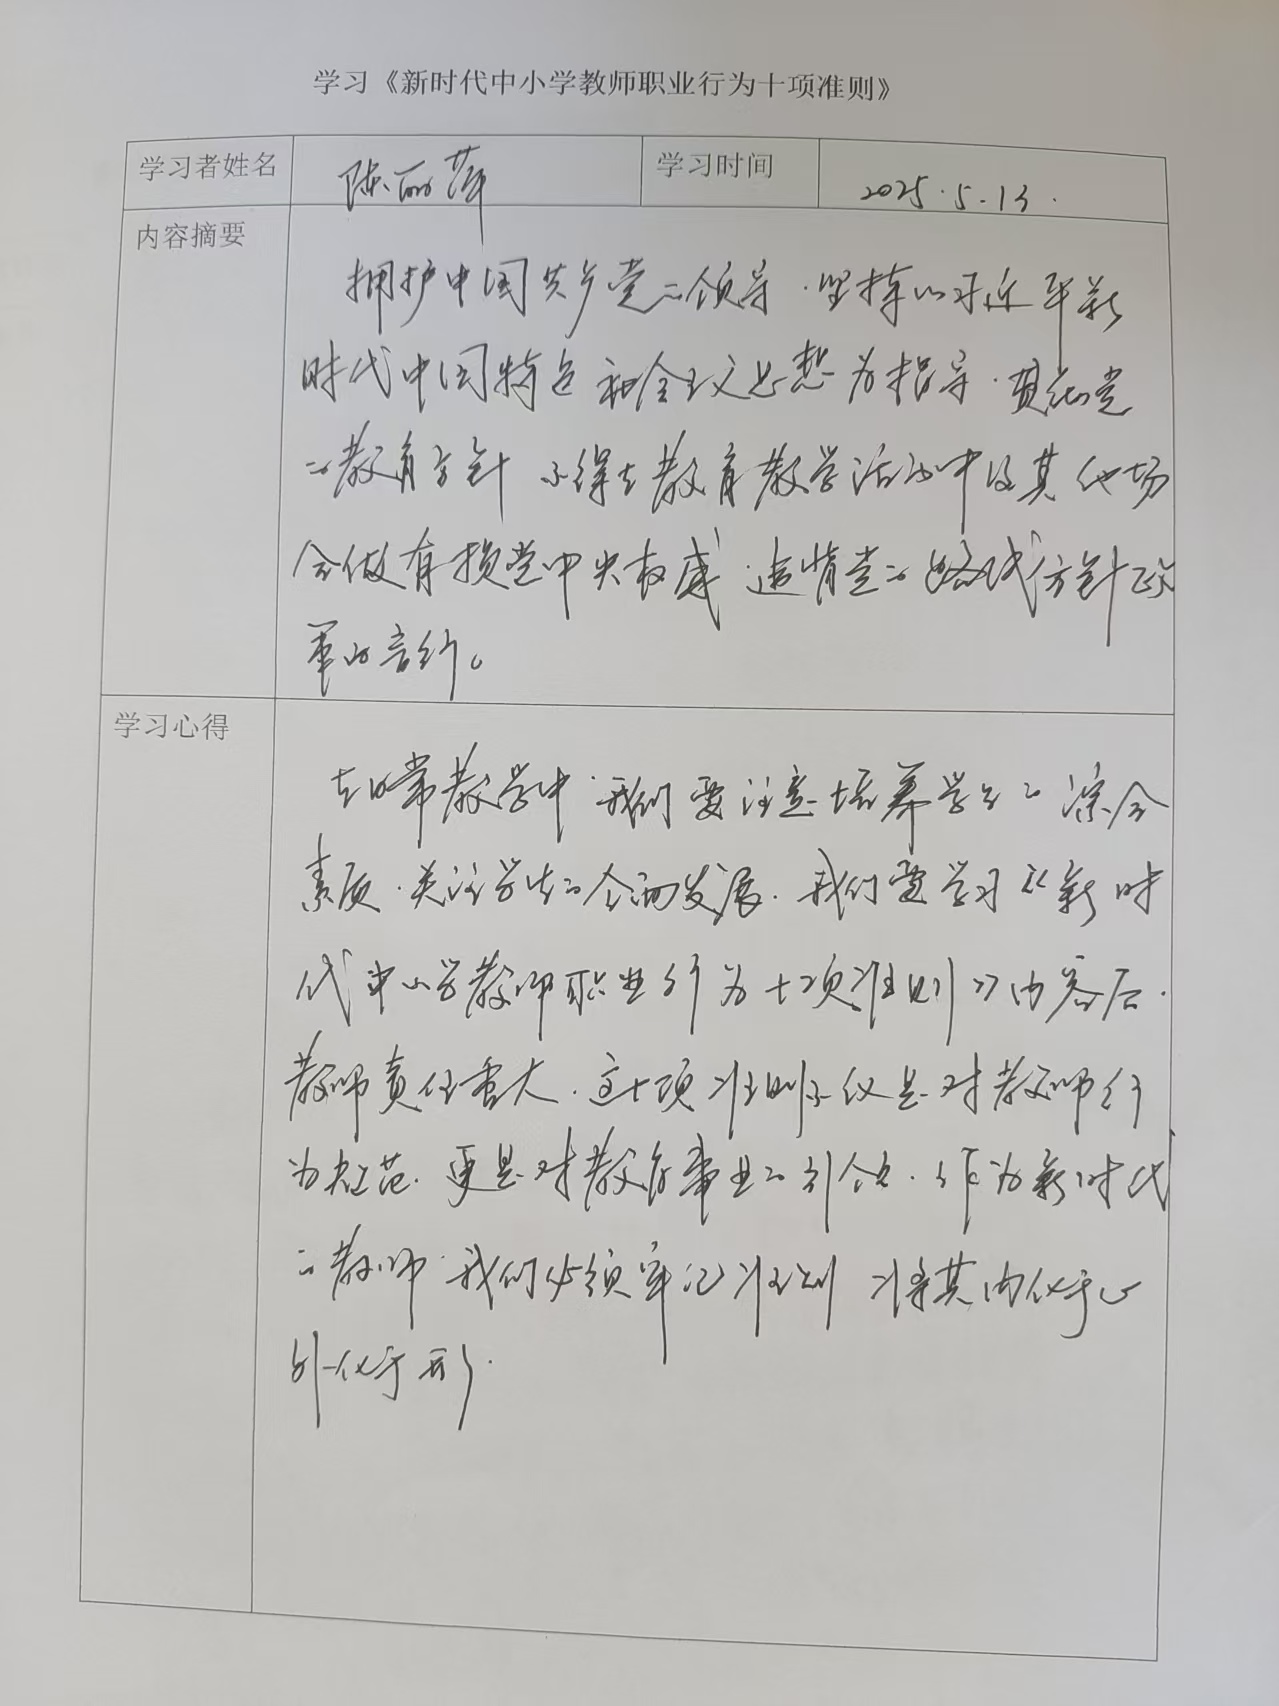 学习《新时代中小学教师职业行为十项准则》
学习者姓名 陈丽萍 学习时间 2025.5.13.
内容摘要
拥护中国共产党的领导.坚持以习近平新
时代中国特色社会主义思想为指导.贯彻党
的教育方针 不得在教育教学活动中及其他场
合做有损党中央权威.违背党的路线方针政
策的言行。
学习心得
在日常教学中.我们要注意培养学生的综合
素质.关注学生的全面发展.我们要学习《新时
代中小学教师职业行为十项准则》内容后.
教师责任重大.这十项准则不仅是对教师行
为规范.更是对教育事业的引领.作为新时代
的教师.我们必须牢记准则 将其内化于心
外化于形.